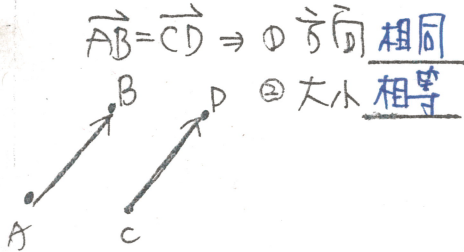 AB=CD ⇒ ① 方向 相同
② 大小 相等
B
D
A
C